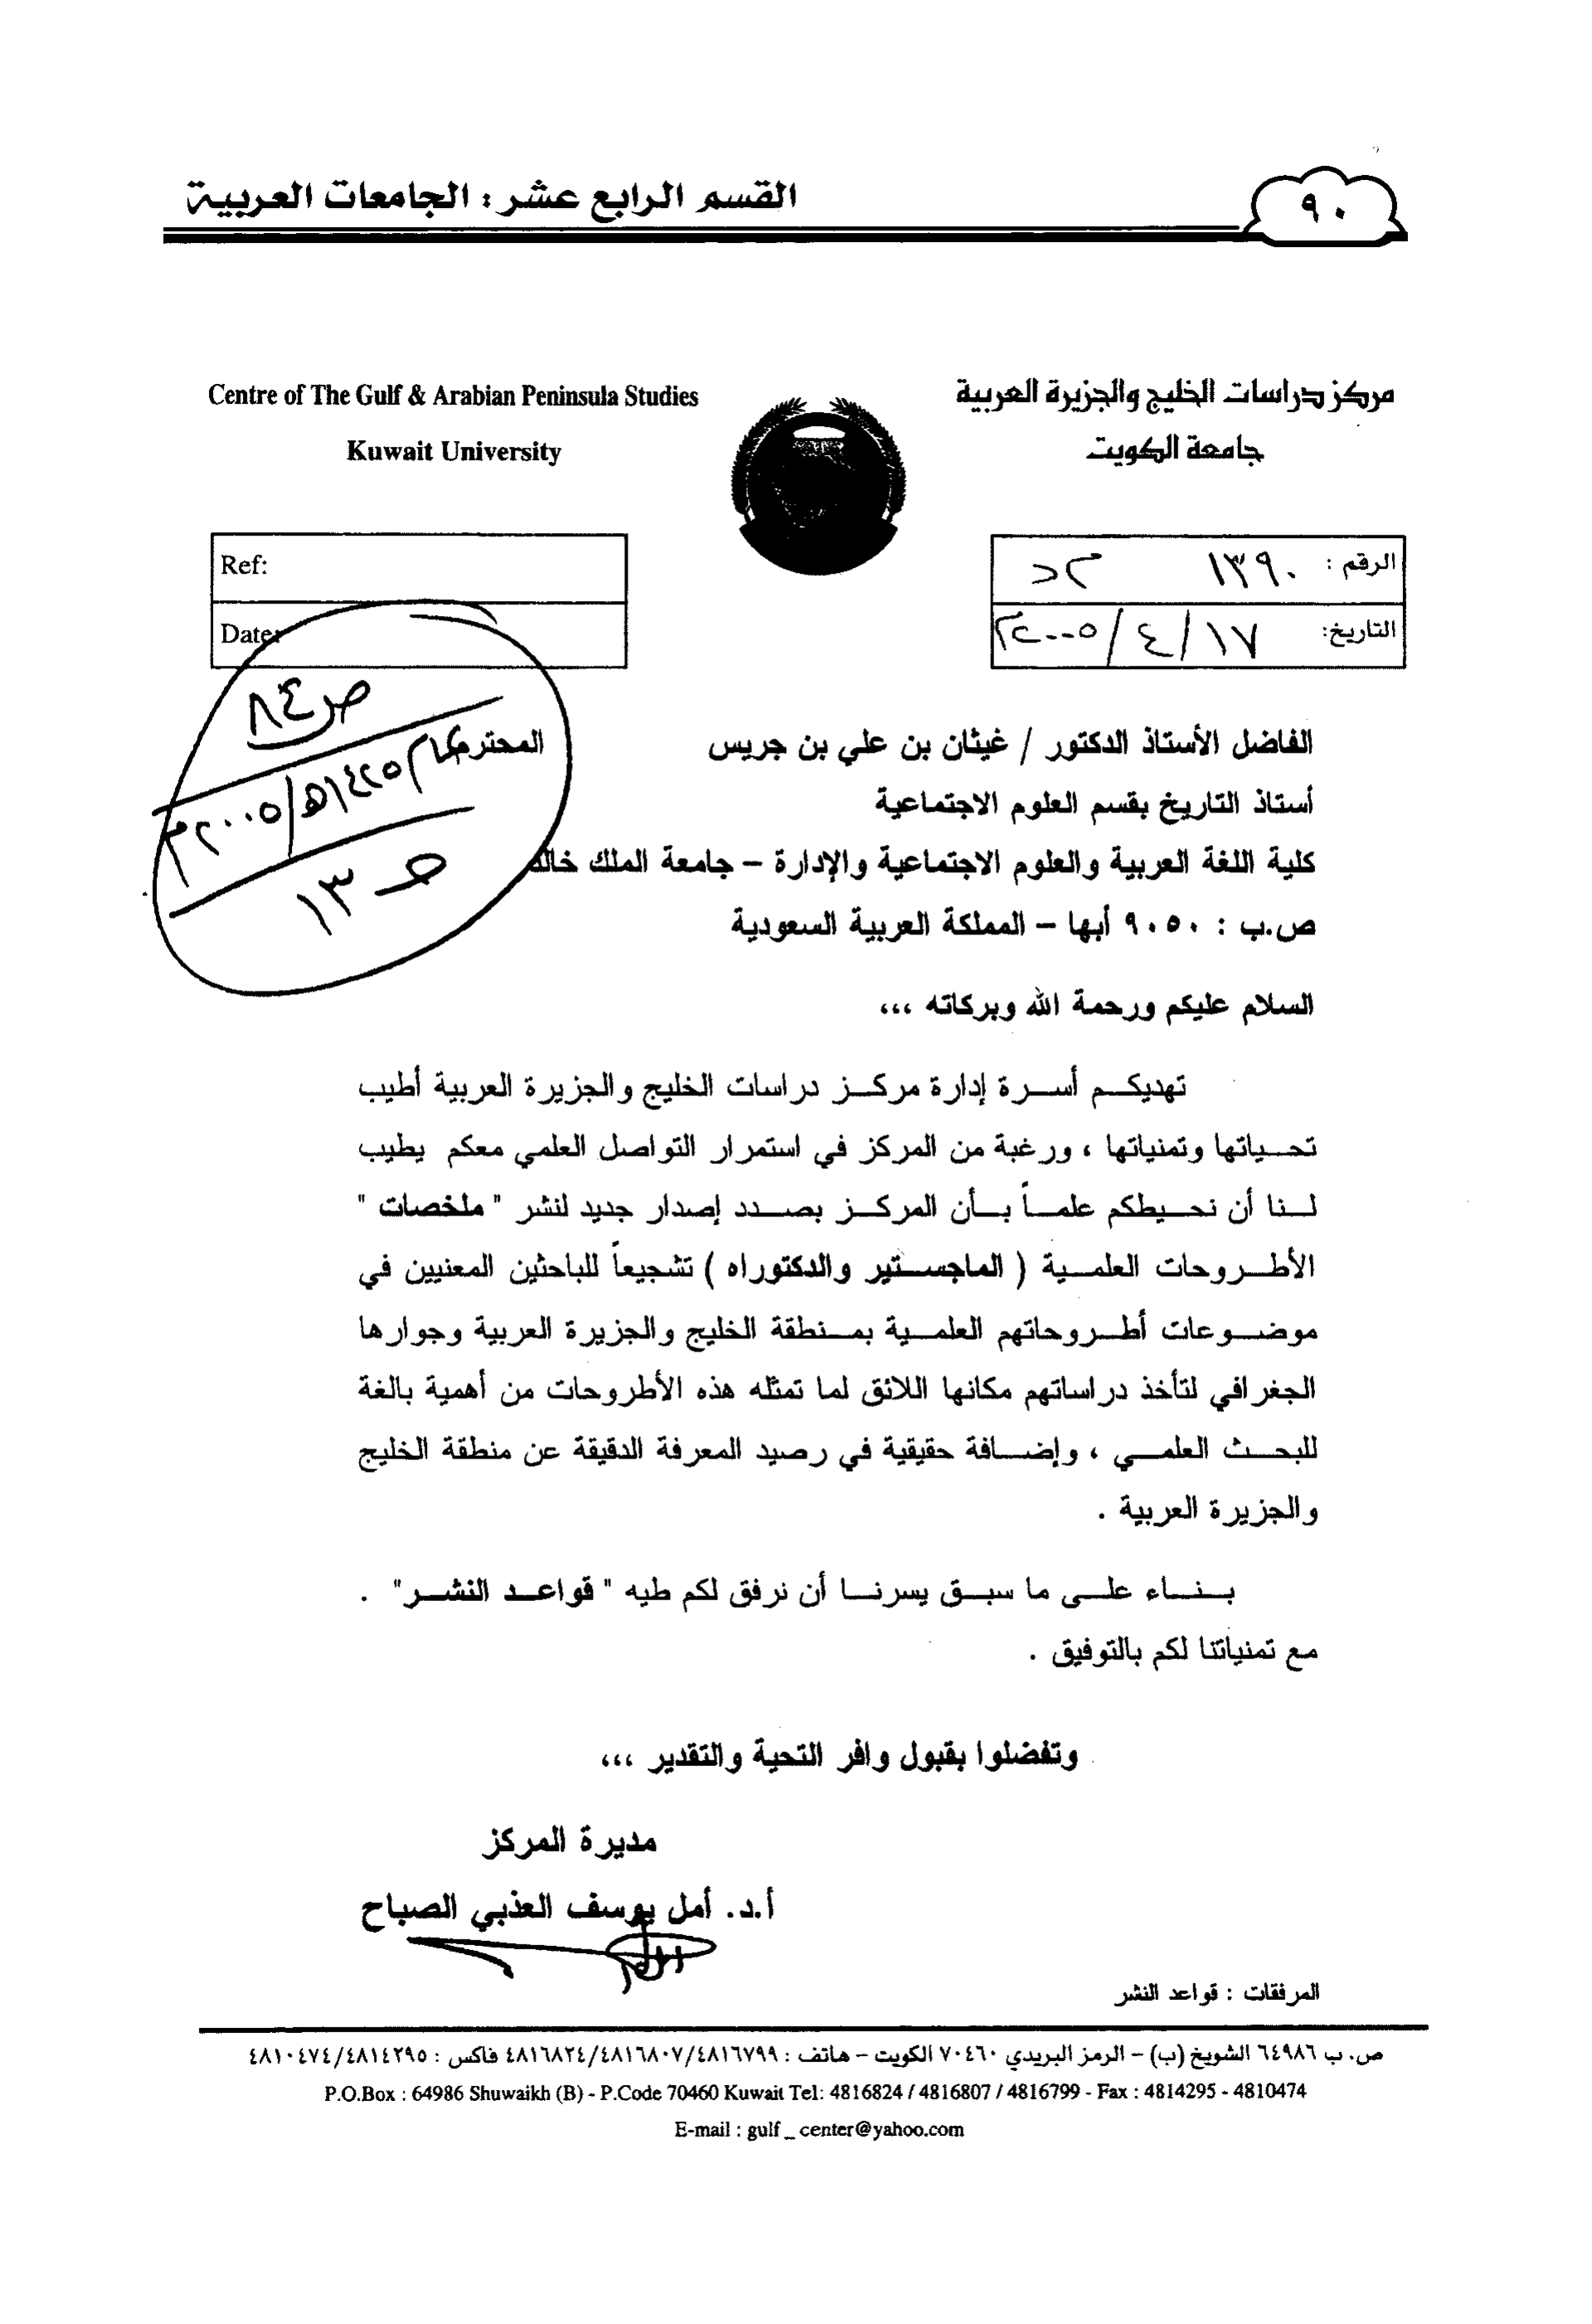 القسم الرابع عشر : الجامعات العربية
٩٠
مركز دراسات الخليج والجزيرة العربية
جامعة الكويت
Centre of The Gulf & Arabian Peninsula Studies
Kuwait University
الرقم : ١٣٩٠
التاريخ: ١٧/٤/٢٠٠٥
Ref:
Date:
ص٨٤
١٤٢٥هـ/٢٠٠٥م
١٣
الفاضل الأستاذ الدكتور / غيثان بن علي بن جريس المحترم
أستاذ التاريخ بقسم العلوم الاجتماعية
كلية اللغة العربية والعلوم الاجتماعية والإدارة – جامعة الملك خالد
ص.ب : ٩٠٥٠ أبها – المملكة العربية السعودية
السلام عليكم ورحمة الله وبركاته ،،،
تهديكم أسرة إدارة مركز دراسات الخليج والجزيرة العربية أطيب
تحياتها وتمنياتها ، ورغبة من المركز في استمرار التواصل العلمي معكم يطيب
لنا أن نحيطكم علماً بأن المركز بصدد إصدار جديد لنشر " ملخصات "
الأطروحات العلمية ( الماجستير والدكتوراه ) تشجيعاً للباحثين المعنيين في
موضوعات أطروحاتهم العلمية بمنطقة الخليج والجزيرة العربية وجوارها
الجغرافي لتأخذ دراساتهم مكانها اللائق لما تمثله هذه الأطروحات من أهمية بالغة
للبحث العلمي ، وإضافة حقيقية في رصيد المعرفة الدقيقة عن منطقة الخليج
والجزيرة العربية .
بناء على ما سبق يسرنا أن نرفق لكم طيه " قواعد النشر" .
مع تمنياتنا لكم بالتوفيق .
وتفضلوا بقبول وافر التحية والتقدير ،،،
مديرة المركز
أ.د. أمل يوسف العذبي الصباح
المرفقات : قواعد النشر
ص. ب ٦٤٩٨٦ الشويخ (ب) – الرمز البريدي ٧٠٤٦٠ الكويت – هاتف : ٤٨١٦٨٢٤/٤٨١٦٨٠٧/٤٨١٦٧٩٩ فاكس : ٤٨١٠٤٧٤/٤٨١٤٢٩٥
P.O.Box : 64986 Shuwaikh (B) - P.Code 70460 Kuwait Tel: 4816824 / 4816807 / 4816799 - Fax : 4814295 - 4810474
E-mail : gulf _ center@yahoo.com